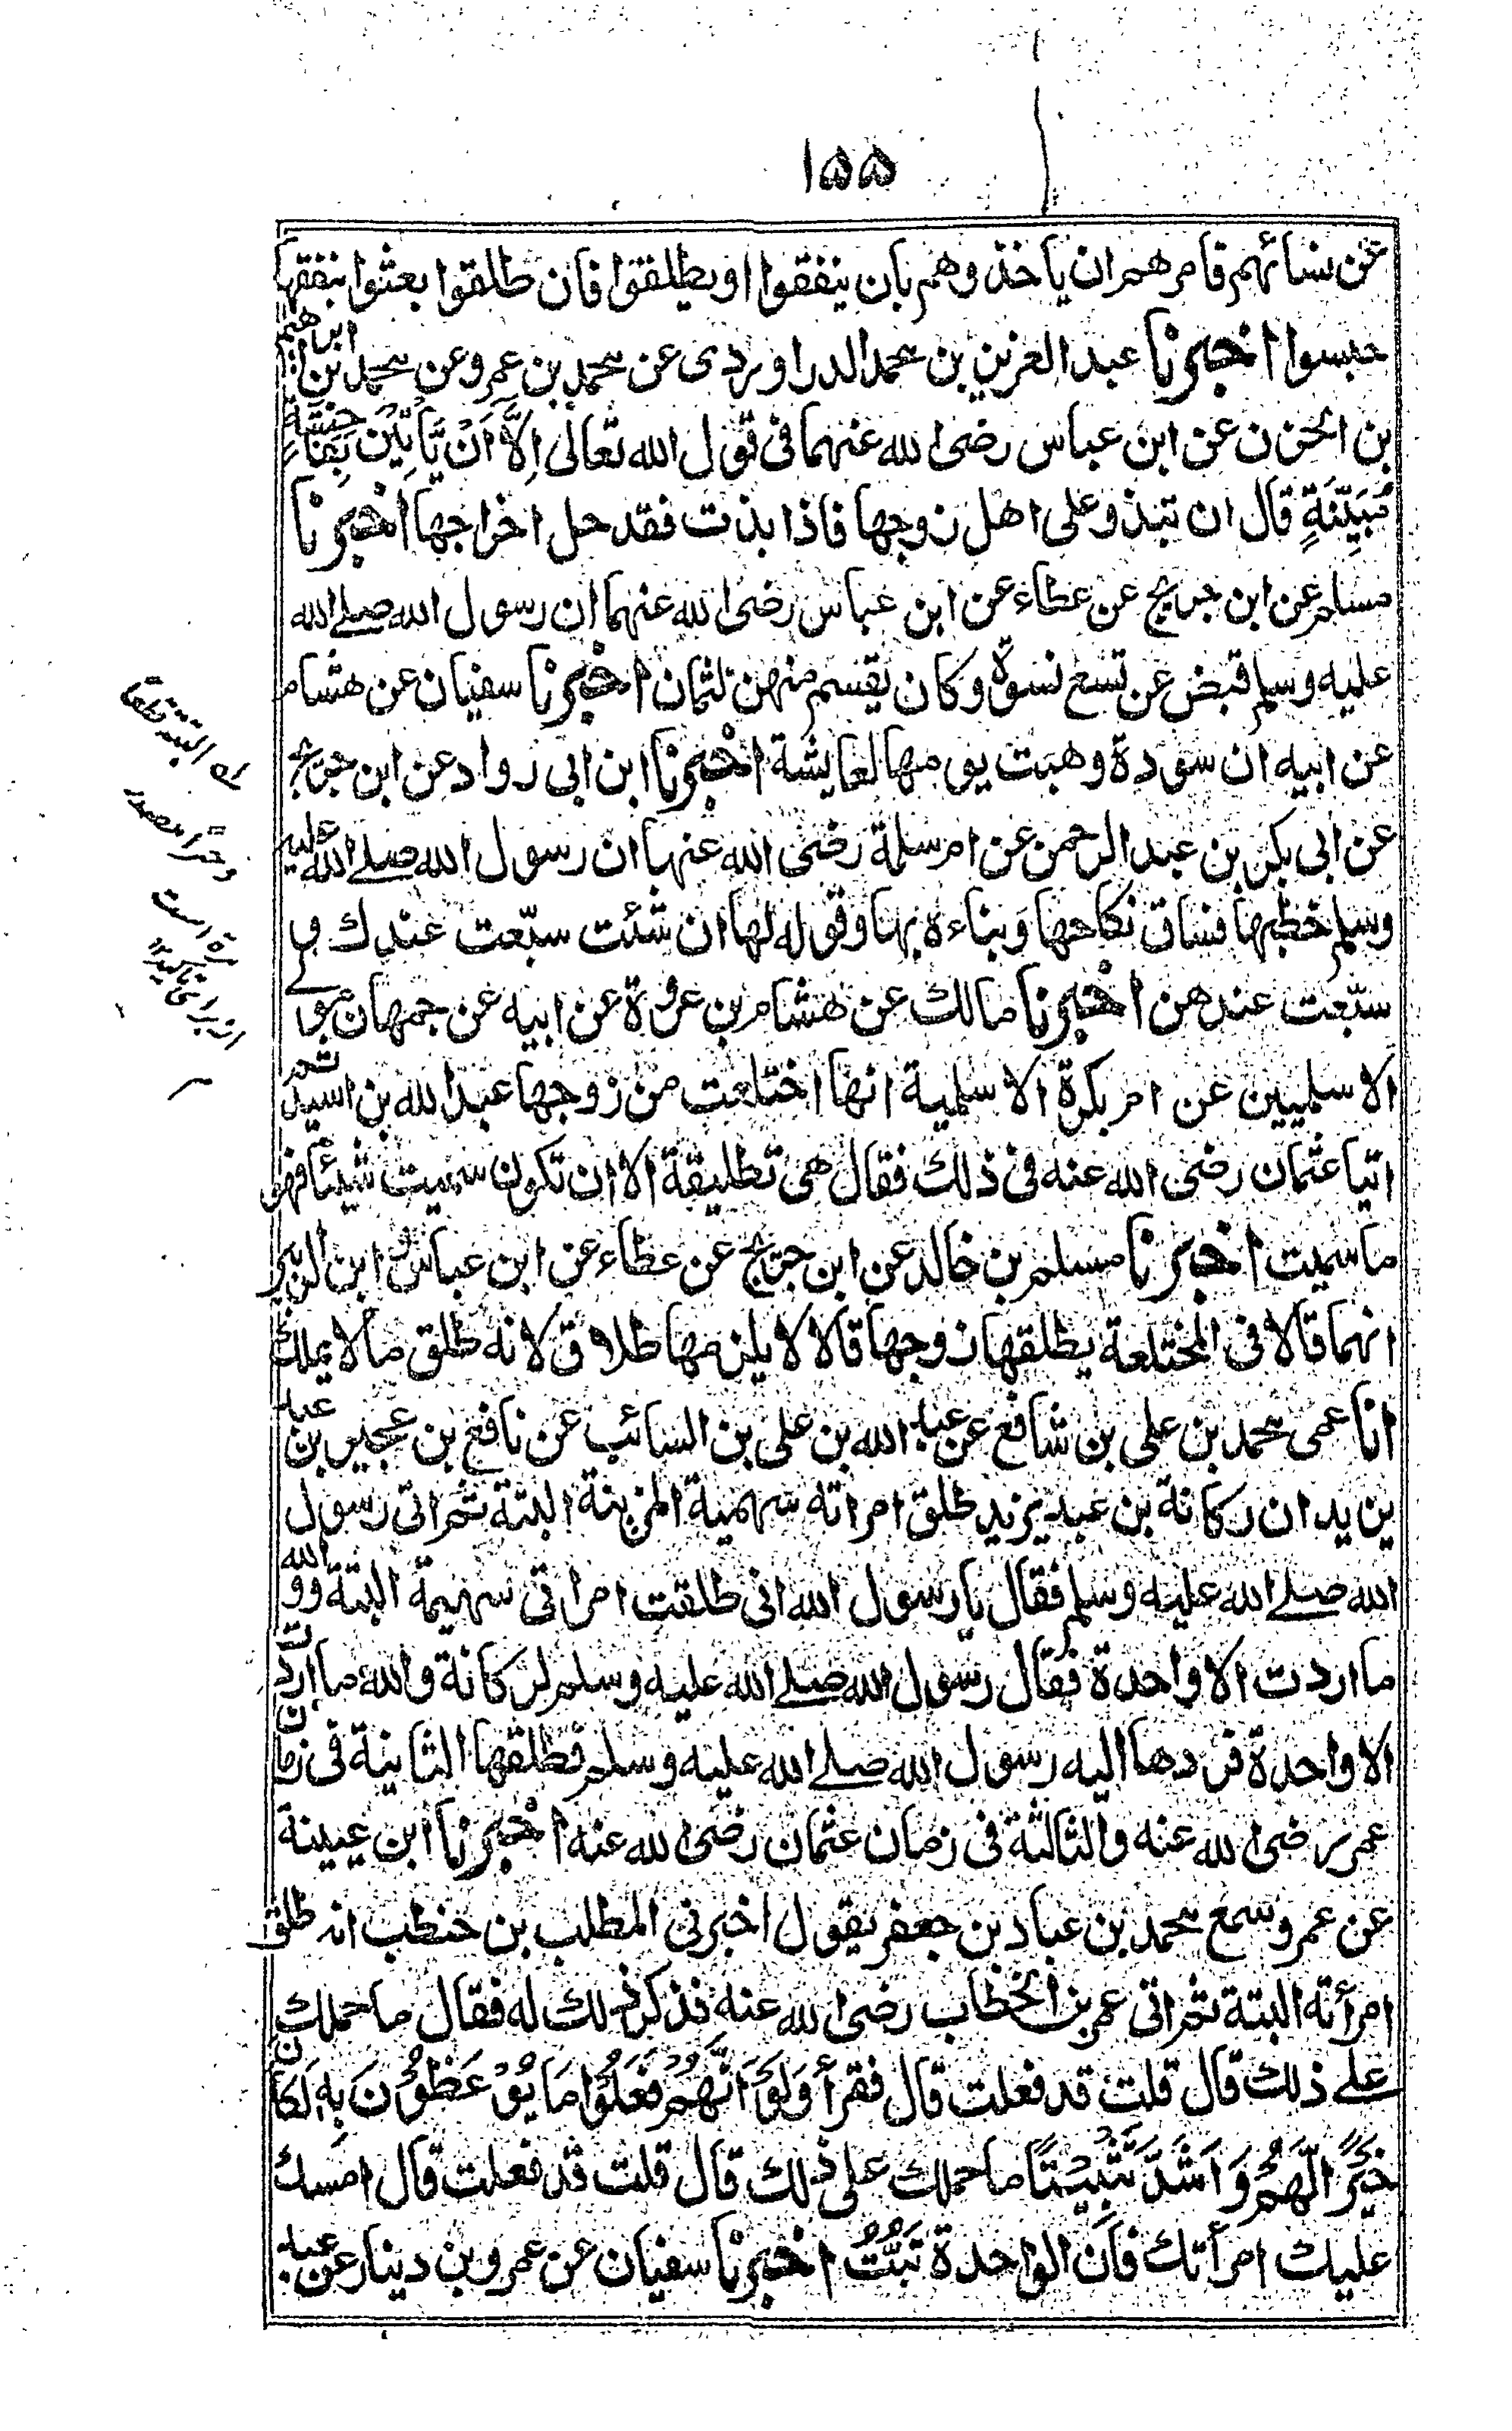 ١٥٥
عن نسائهم فامرهم ان ياخذوهم بان ينفقوا او يطلقوا فان طلقوا بعثوا بنفقة ما
حبسوا اخبرنا عبد العزيز بن محمد الدراوردى عن محمد بن عمرو عن محمد بن ابراهيم
بن الحزن عن ابن عباس رضى الله عنهما فى قول الله تعالى اِلَّا اَنْ يَّاْتِيْنَ بِفَاحِشَةٍ
مُّبَيِّنَةٍ قال ان تبذو على اهل زوجها فاذا بذت فقد حل اخراجها اخبرنا
مسلم عن ابن جريج عن عطاء عن ابن عباس رضى الله عنهما ان رسول الله صلے الله
عليه وسلم قبض عن تسع نسوة وكان يقسم منهن لثمان اخبرنا سفيان عن هشام
عن ابيه ان سودة وهبت يومها لعايشة اخبرنا ابن ابى رواد عن ابن جريج
عن ابى بكر بن عبد الرحمن عن ام سلمة رضى الله عنها ان رسول الله صلے الله عليه
وسلم خطبها فساق نكاحها وبناءه بها وقوله لها ان شئت سبّعت عندك و
سبّعت عندهن اخبرنا مالك عن هشام بن عروة عن ابيه عن جمهان مولے
الاسلميين عن ام بكرة الاسلمية انها اختلعت من زوجها عبد الله بن اسيد ثم
اتيا عثمان رضى الله عنه فى ذلك فقال هى تطليقة الا ان تكون سميت شيئا فهو
ما سميت اخبرنا مسلم بن خالد عن ابن جريج عن عطاء عن ابن عباس و ابن الزبير
انهما قالا فى المختلعة يطلقها زوجها قالا لا يلزمها طلاق لانه طلق ما لا يملك
انا عمى محمد بن على بن شافع عن عبد الله بن على بن السائب عن نافع بن عجير بن عبد
يزيد ان ركانة بن عبد يزيد طلق امراته سهمية المزينة البتة ثم اتى رسول
الله صلے الله عليه وسلم فقال يا رسول الله انى طلقت امراتى سهيمة البتة ووالله
ما اردت الا واحدة فقال رسول الله صلے الله عليه وسلم لركانة والله ما اردت
الا واحدة فردها اليه رسول الله صلے الله عليه وسلم فطلقها الثانية فى زمان
عمر رضى الله عنه والثالثة فى زمان عثمان رضى الله عنه اخبرنا ابن عيينة
عن عمرو سمع محمد بن عباد بن جعفر يقول اخبرنى المطلب بن حنطب انه طلق
امرأته البتة ثم اتى عمر بن الخطاب رضى الله عنه فذكر ذلك له فقال ما حملك
علے ذلك قال قلت قد فعلت قال فقرأ وَلَوْ اَنَّهُمْ فَعَلُوْا مَا يُوْعَظُوْنَ بِهٖ لَكَانَ
خَيْرًا لَّهُمْ وَاَشَدَّ تَثْبِيْتًا ما حملك على ذلك قال قلت قد فعلت قال امسك
عليك امرأتك فان الواحدة تَبُتُّ اخبرنا سفيان عن عمرو بن دينار عن عبد